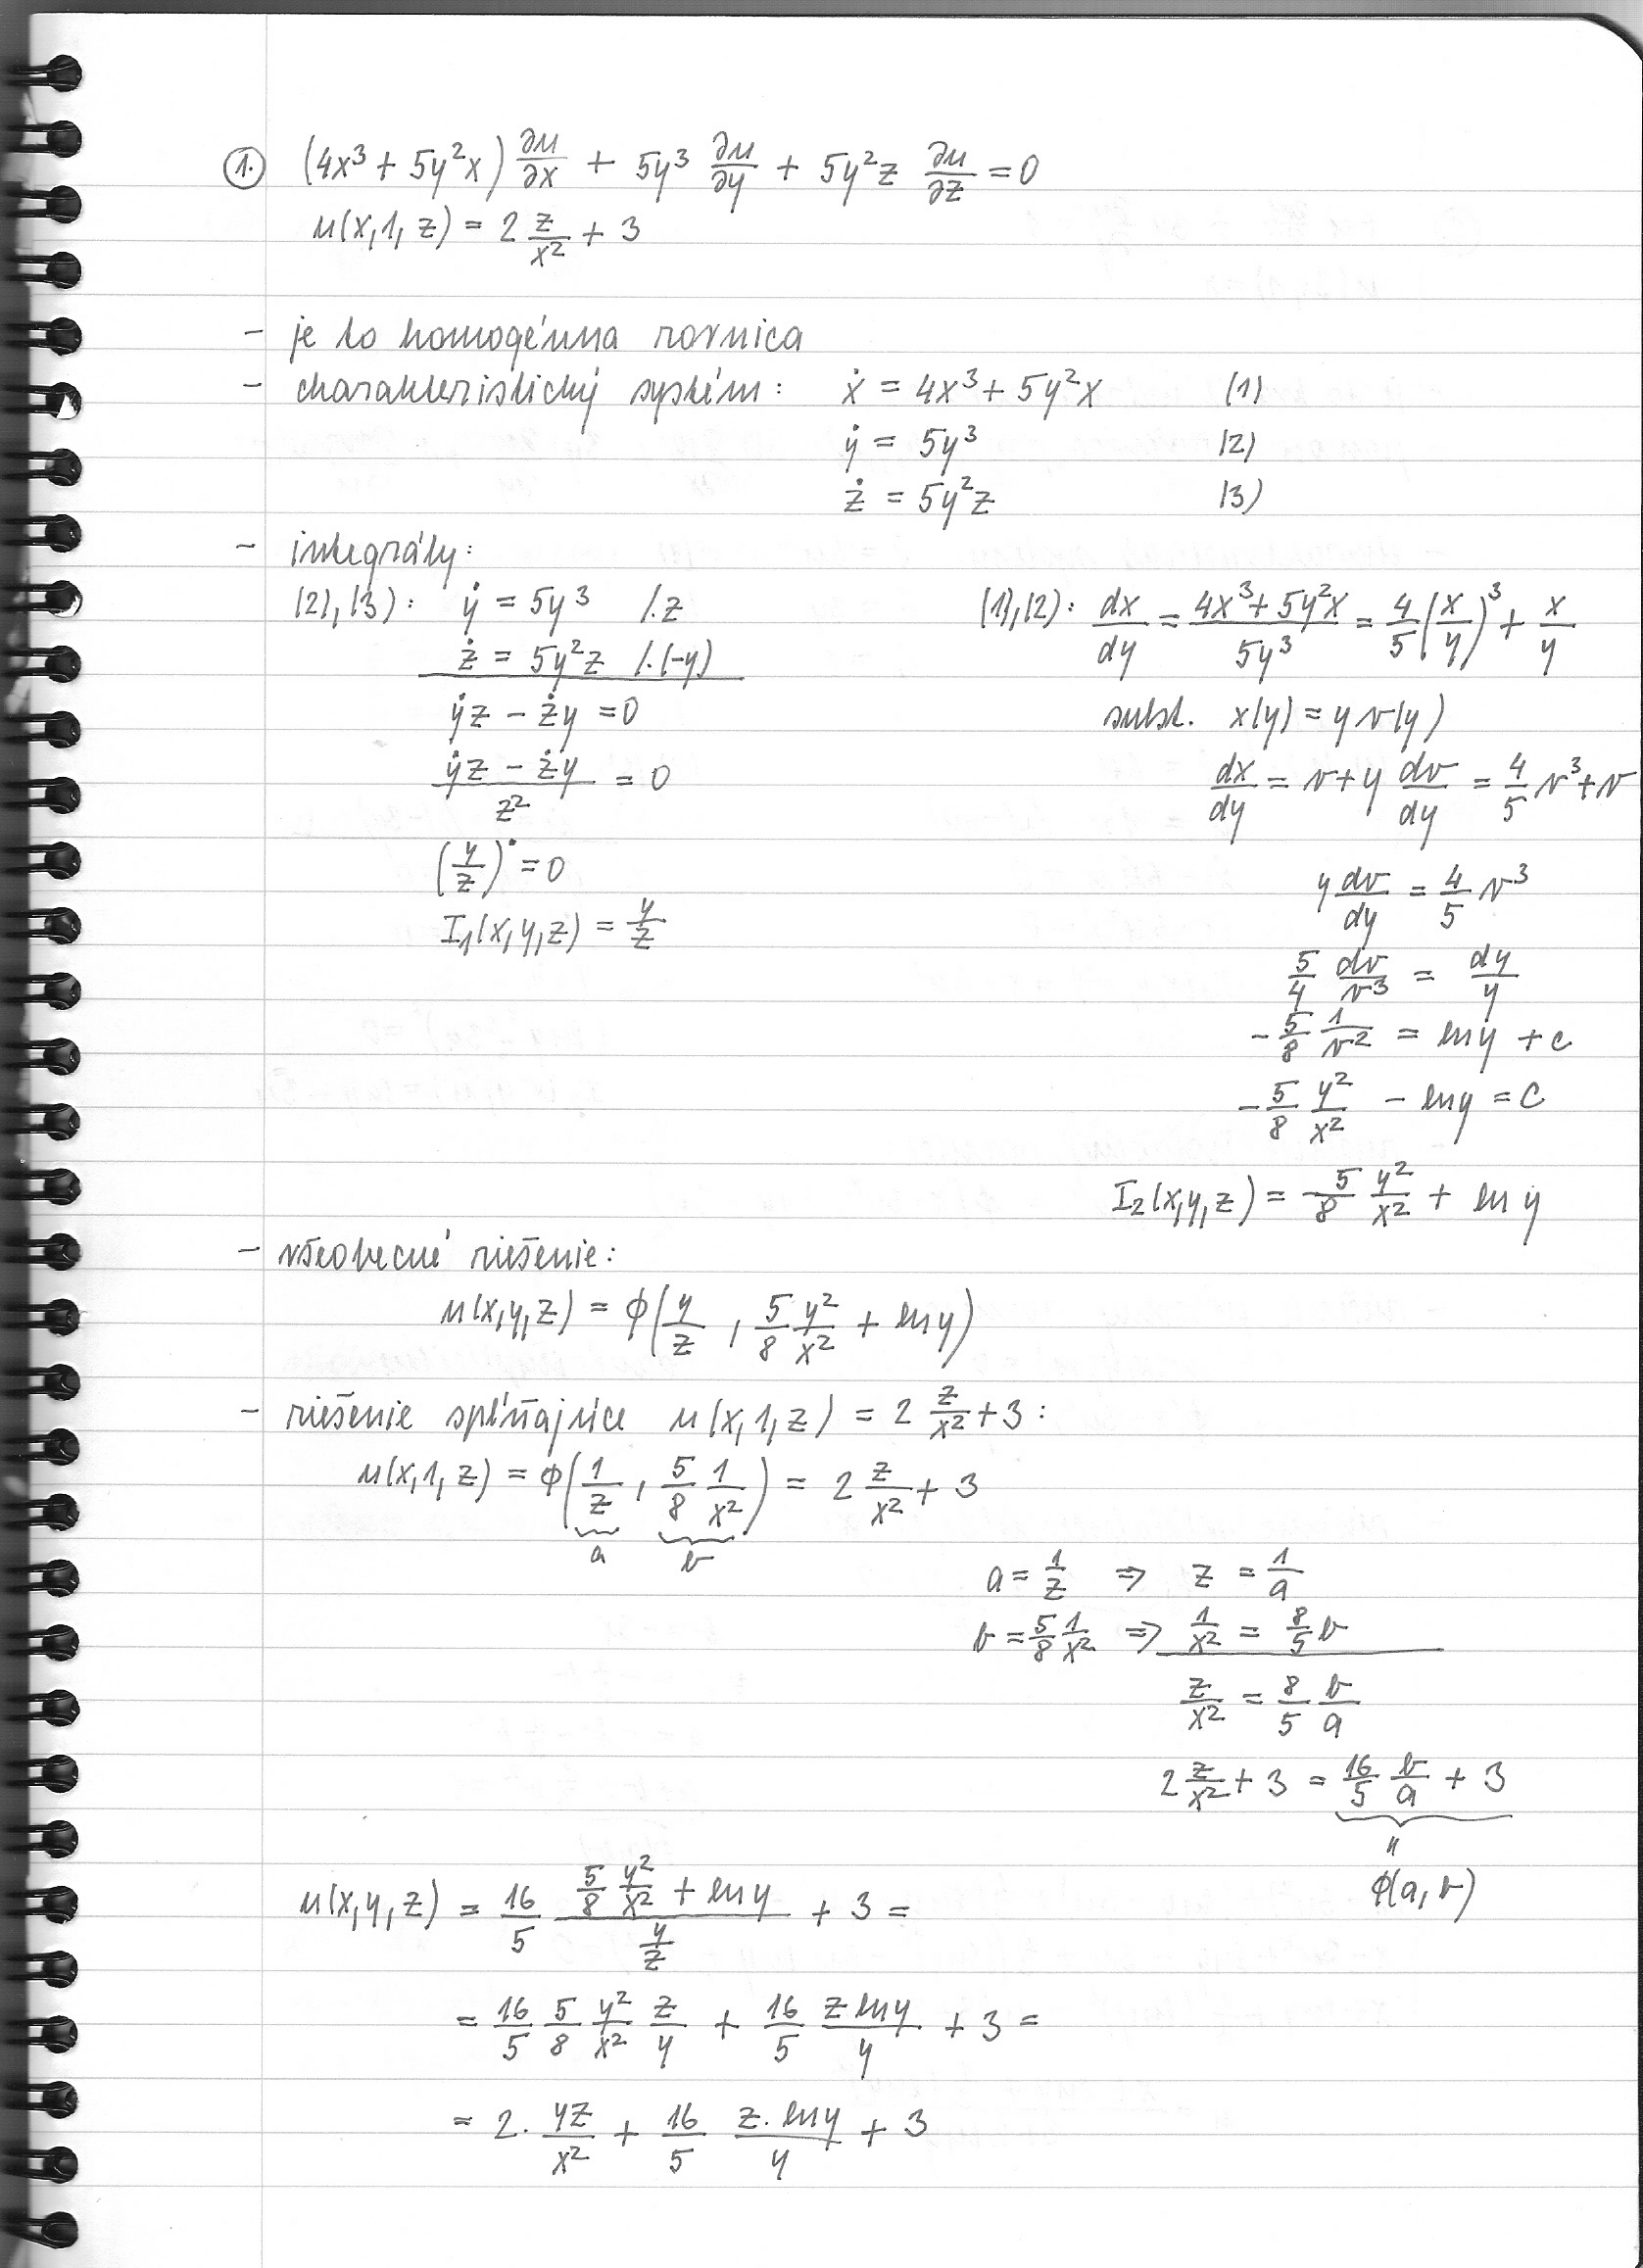 1. (4x³ + 5y²x) ∂u/∂x + 5y³ ∂u/∂y + 5y²z ∂u/∂z = 0
u(x,1,z) = 2 z/x² + 3
- je to homogénna rovnica
- charakteristický systém: ẋ = 4x³ + 5y²x (1)
ẏ = 5y³ (2)
ż = 5y²z (3)
- integrály:
(2),(3): ẏ = 5y³ /.z
ż = 5y²z /.(-y)
ẏz - ży = 0
(ẏz - ży)/z² = 0
(y/z)˙ = 0
I₁(x,y,z) = y/z
(1),(2): dx/dy = (4x³ + 5y²x)/5y³ = 4/5 (x/y)³ + x/y
subst. x(y) = y v(y)
dx/dy = v + y dv/dy = 4/5 v³ + v
y dv/dy = 4/5 v³
5/4 dv/v³ = dy/y
-5/8 1/v² = ln y + c
-5/8 y²/x² - ln y = C
I₂(x,y,z) = 5/8 y²/x² + ln y
- všeobecné riešenie:
u(x,y,z) = ϕ(y/z , 5/8 y²/x² + ln y)
- riešenie spĺňajúce u(x,1,z) = 2 z/x² + 3:
u(x,1,z) = ϕ(1/z , 5/8 1/x²) = 2 z/x² + 3
a b
a = 1/z ⇒ z = 1/a
b = 5/8 1/x² ⇒ 1/x² = 8/5 b
z/x² = 8/5 b/a
2 z/x² + 3 = 16/5 b/a + 3
"
ϕ(a,b)
u(x,y,z) = 16/5 (5/8 y²/x² + ln y)/(y/z) + 3 =
= 16/5 5/8 y²/x² z/y + 16/5 z ln y/y + 3 =
= 2. yz/x² + 16/5 z. ln y/y + 3